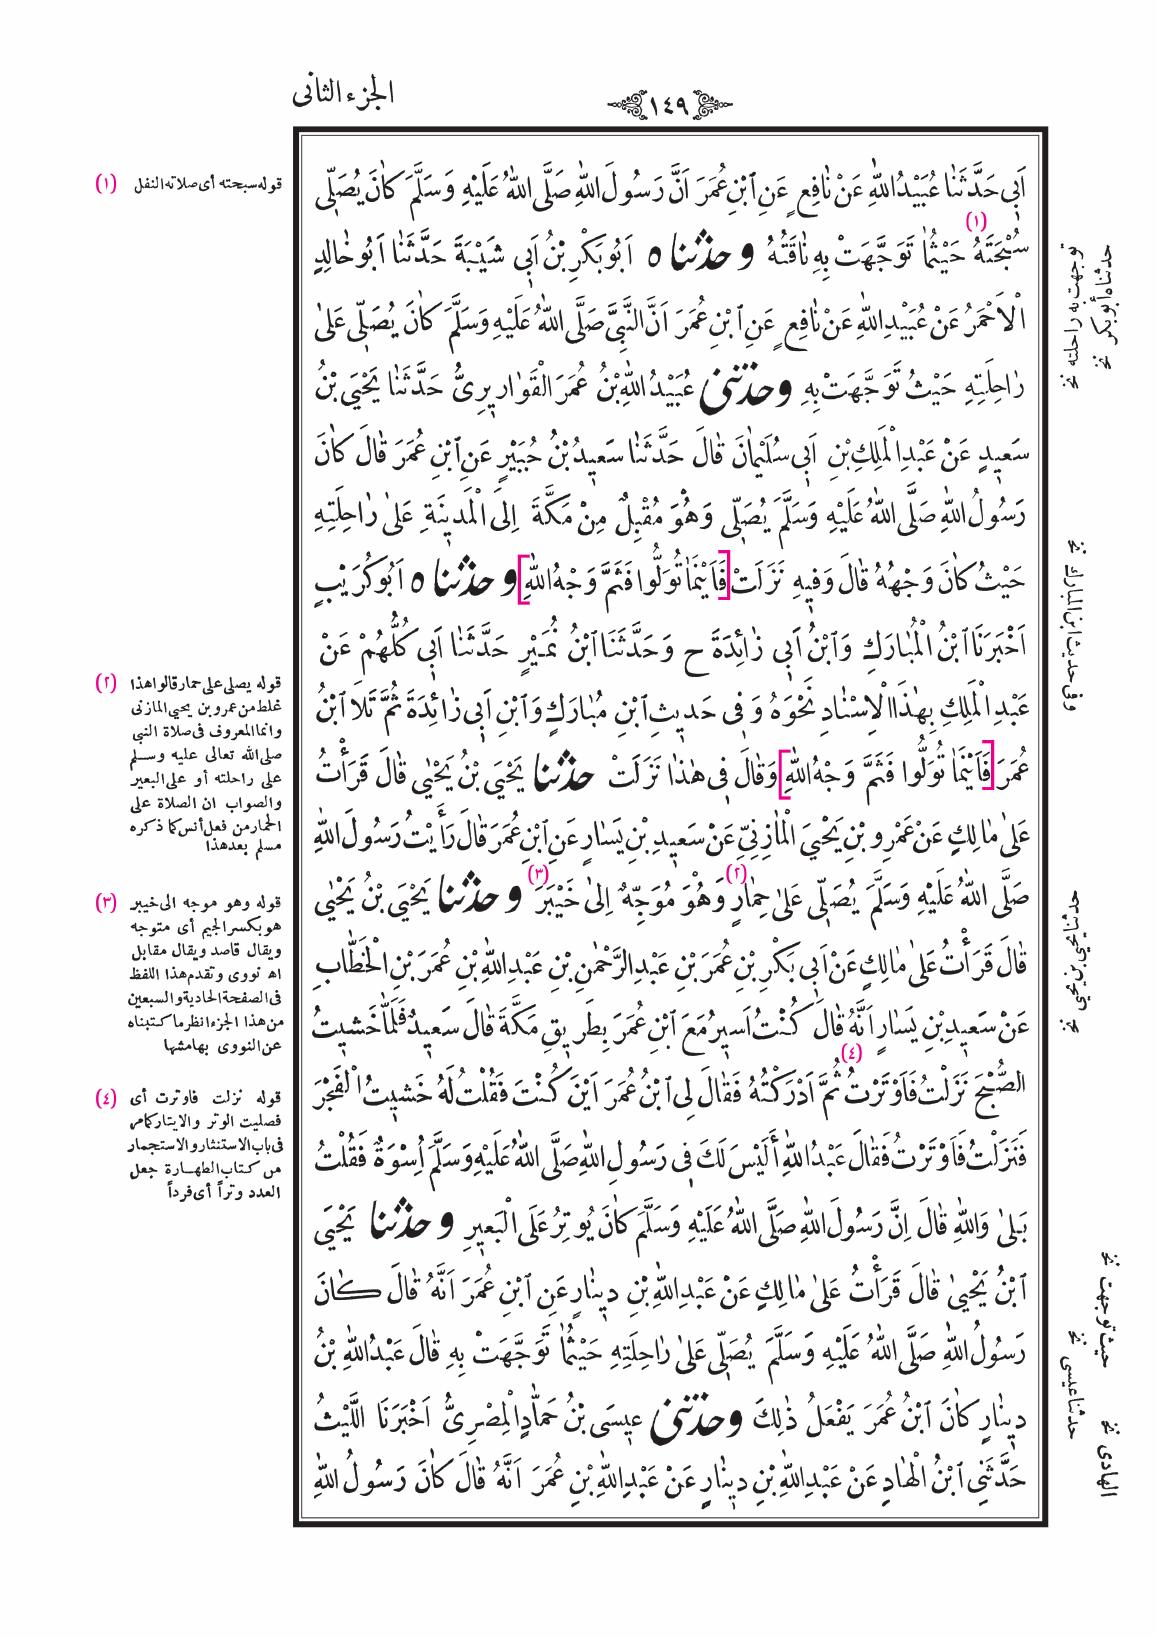 الجزء الثانى
١٤٩
اَبِى حَدَّثَنَا عُبَيْدُ اللّٰهِ عَنْ نَافِعٍ عَنِ ابْنِ عُمَرَ اَنَّ رَسُولَ اللّٰهِ صَلَّى اللّٰهُ عَلَيْهِ وَسَلَّمَ كَانَ يُصَلِّى
سُبْحَتَهُ (١) حَيْثُمَا تَوَجَّهَتْ بِهِ نَاقَتُهُ و حدثنا ه اَبُو بَكْرِ بْنُ اَبِى شَيْبَةَ حَدَّثَنَا اَبُو خَالِدٍ
الْاَحْمَرُ عَنْ عُبَيْدِ اللّٰهِ عَنْ نَافِعٍ عَنِ ابْنِ عُمَرَ اَنَّ النَّبِىَّ صَلَّى اللّٰهُ عَلَيْهِ وَسَلَّمَ كَانَ يُصَلِّى عَلىٰ
رَاحِلَتِهِ حَيْثُ تَوَجَّهَتْ بِهِ وحدثنى عُبَيْدُ اللّٰهِ بْنُ عُمَرَ الْقَوَارِيرِىُّ حَدَّثَنَا يَحْيَى بْنُ
سَعِيدٍ عَنْ عَبْدِ الْمَلِكِ بْنِ اَبِى سُلَيْمَانَ قَالَ حَدَّثَنَا سَعِيدُ بْنُ جُبَيْرٍ عَنِ ابْنِ عُمَرَ قَالَ كَانَ
رَسُولُ اللّٰهِ صَلَّى اللّٰهُ عَلَيْهِ وَسَلَّمَ يُصَلِّى وَهُوَ مُقْبِلٌ مِنْ مَكَّةَ اِلَى الْمَدِينَةِ عَلىٰ رَاحِلَتِهِ
حَيْثُ كَانَ وَجْهُهُ قَالَ وَفِيهِ نَزَلَتْ [فَاَيْنَمَا تُوَلُّوا فَثَمَّ وَجْهُ اللّٰهِ] و حدثنا ه اَبُو كُرَيْبٍ
اَخْبَرَنَا ابْنُ الْمُبَارَكِ وَابْنُ اَبِى زَائِدَةَ ح وَحَدَّثَنَا ابْنُ نُمَيْرٍ حَدَّثَنَا اَبِى كُلُّهُمْ عَنْ
عَبْدِ الْمَلِكِ بِهٰذَا الْاِسْنَادِ نَحْوَهُ وَ فِى حَدِيثِ ابْنِ مُبَارَكٍ وَابْنِ اَبِى زَائِدَةَ ثُمَّ تَلَا ابْنُ
عُمَرَ [فَاَيْنَمَا تُوَلُّوا فَثَمَّ وَجْهُ اللّٰهِ] وَقَالَ فِى هٰذَا نَزَلَتْ حدثنا يَحْيَى بْنُ يَحْيىٰ قَالَ قَرَأْتُ
عَلىٰ مَالِكٍ عَنْ عَمْرِو بْنِ يَحْيَى الْمَازِنِىِّ عَنْ سَعِيدِ بْنِ يَسَارٍ عَنِ ابْنِ عُمَرَ قَالَ رَأَيْتُ رَسُولَ اللّٰهِ
صَلَّى اللّٰهُ عَلَيْهِ وَسَلَّمَ يُصَلِّى عَلىٰ حِمَارٍ (٢) وَهُوَ مُوَجِّهٌ اِلىٰ خَيْبَرَ (٣) و حدثنا يَحْيَى بْنُ يَحْيىٰ
قَالَ قَرَأْتُ عَلىٰ مَالِكٍ عَنْ اَبِى بَكْرِ بْنِ عُمَرَ بْنِ عَبْدِ الرَّحْمٰنِ بْنِ عَبْدِ اللّٰهِ بْنِ عُمَرَ بْنِ الْخَطَّابِ
عَنْ سَعِيدِ بْنِ يَسَارٍ اَنَّهُ قَالَ كُنْتُ اَسِيرُ مَعَ ابْنِ عُمَرَ بِطَرِيقِ مَكَّةَ قَالَ سَعِيدٌ فَلَمَّا خَشِيتُ
الصُّبْحَ نَزَلْتُ فَاَوْتَرْتُ (٤) ثُمَّ اَدْرَكْتُهُ فَقَالَ لِى ابْنُ عُمَرَ اَيْنَ كُنْتَ فَقُلْتُ لَهُ خَشِيتُ الْفَجْرَ
فَنَزَلْتُ فَاَوْتَرْتُ فَقَالَ عَبْدُ اللّٰهِ أَلَيْسَ لَكَ فِى رَسُولِ اللّٰهِ صَلَّى اللّٰهُ عَلَيْهِ وَسَلَّمَ اِسْوَةٌ فَقُلْتُ
بَلىٰ وَاللّٰهِ قَالَ اِنَّ رَسُولَ اللّٰهِ صَلَّى اللّٰهُ عَلَيْهِ وَسَلَّمَ كَانَ يُوتِرُ عَلَى الْبَعِيرِ و حدثنا يَحْيَى
ابْنُ يَحْيىٰ قَالَ قَرَأْتُ عَلىٰ مَالِكٍ عَنْ عَبْدِ اللّٰهِ بْنِ دِينَارٍ عَنِ ابْنِ عُمَرَ اَنَّهُ قَالَ كَانَ
رَسُولُ اللّٰهِ صَلَّى اللّٰهُ عَلَيْهِ وَسَلَّمَ يُصَلِّى عَلىٰ رَاحِلَتِهِ حَيْثُمَا تَوَجَّهَتْ بِهِ قَالَ عَبْدُ اللّٰهِ بْنُ
دِينَارٍ كَانَ ابْنُ عُمَرَ يَفْعَلُ ذٰلِكَ وحدثنى عِيسَى بْنُ حَمَّادٍ الْمِصْرِىُّ اَخْبَرَنَا اللَّيْثُ
حَدَّثَنِى ابْنُ الْهَادِ عَنْ عَبْدِ اللّٰهِ بْنِ دِينَارٍ عَنْ عَبْدِ اللّٰهِ بْنِ عُمَرَ اَنَّهُ قَالَ كَانَ رَسُولُ اللّٰهِ
(١) قوله سبحته أى صلاته النفل
(٢) قوله يصلى على حمار قالوا هذا
غلط من عمرو بن يحيى المازنى
وانما المعروف فى صلاة النبى
صلى الله تعالى عليه وسلم
على راحلته أو على البعير
والصواب ان الصلاة على
الحمار من فعل أنس كما ذكره
مسلم بعد هذا
(٣) قوله وهو موجه الى خيبر
هو بكسر الجيم أى متوجه
ويقال قاصد ويقال مقابل
اه نووى وتقدم هذا اللفظ
فى الصفحة الحادية والسبعين
من هذا الجزء انظر ما كتبناه
عن النووى بهامشها
(٤) قوله نزلت فاوترت أى
فصليت الوتر والايتار كما مر
فى باب الاستنثار والاستجمار
من كتاب الطهارة جعل
العدد وتراً أى فرداً
حدثناه أبو بكر نخ
توجهت به راحلته نخ
وفى حديث ابن المبارك نخ
حدثنا يحيى بن يحيى نخ
حيث توجهت نخ
حدثنا عيسى نخ
الهادى نخ